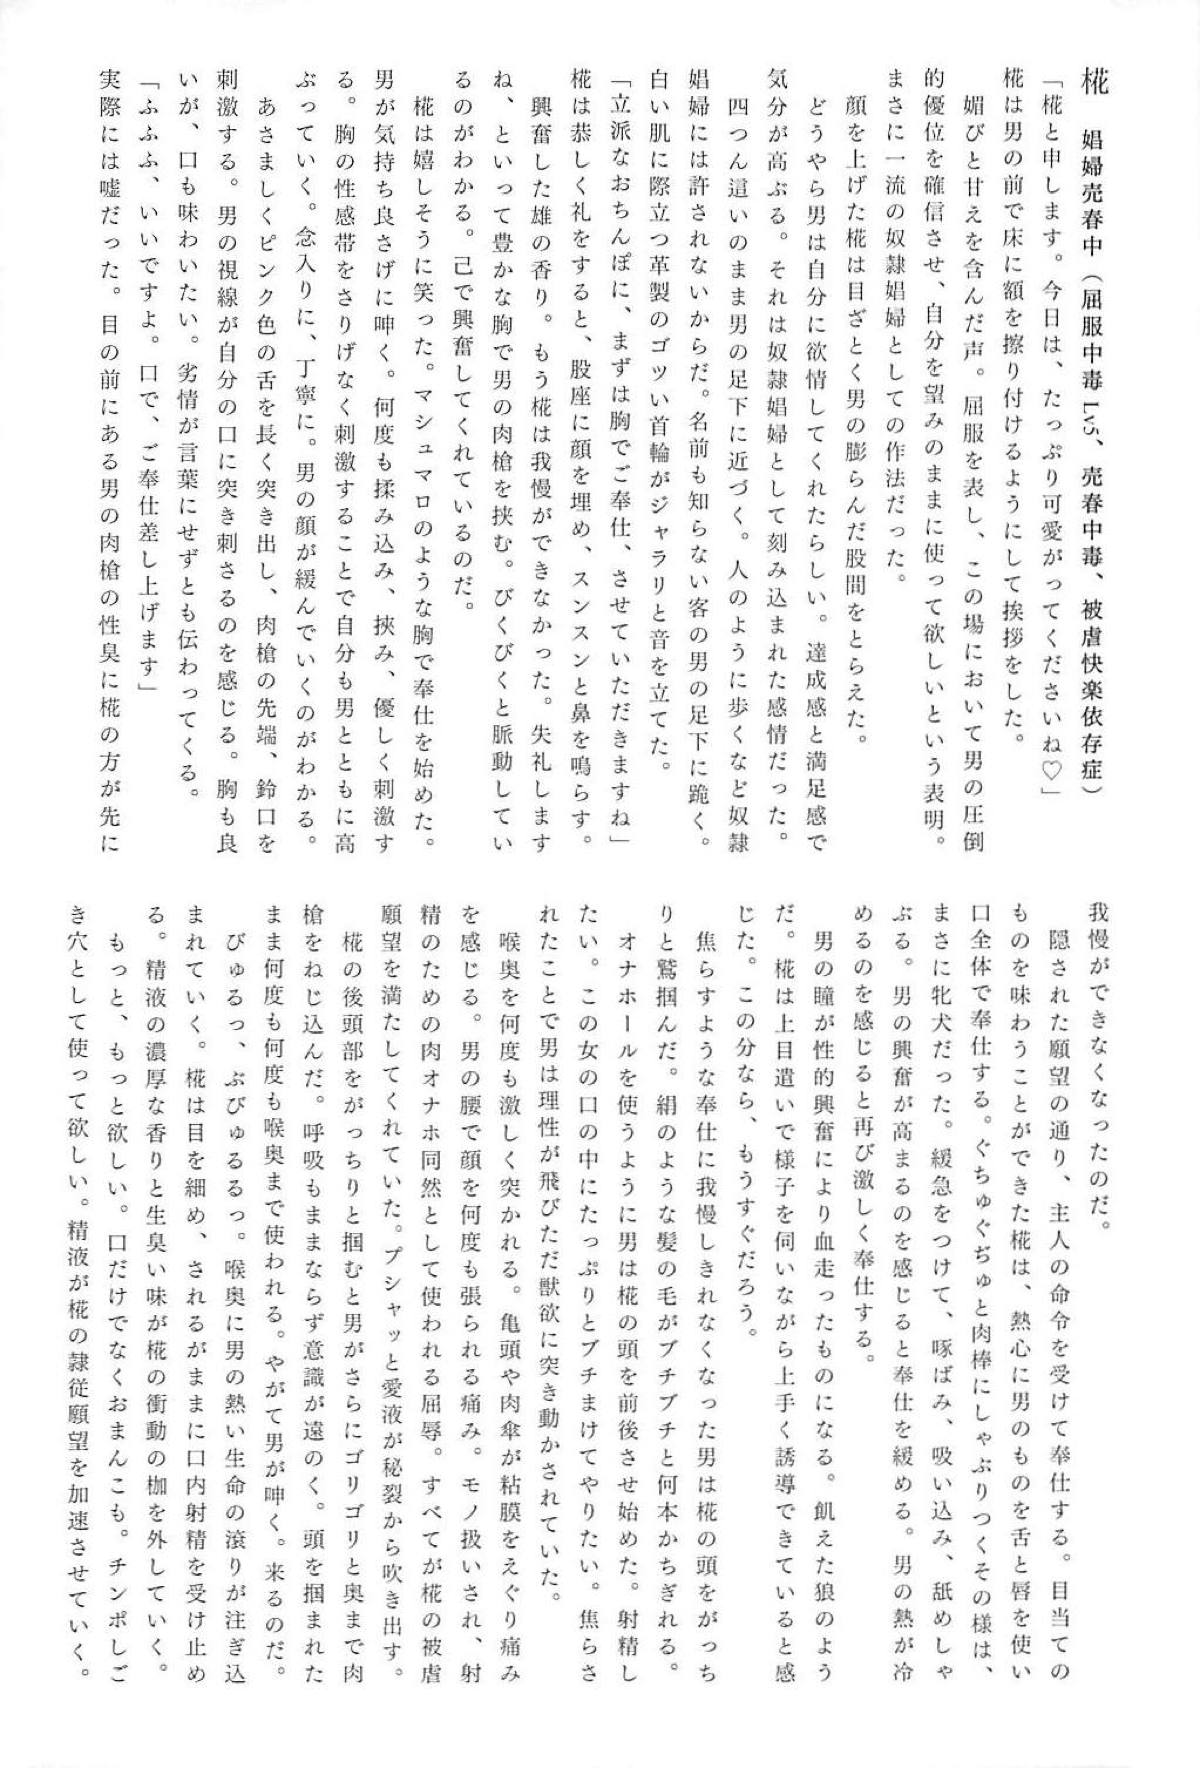 椛　娼婦売春中（屈服中毒Lv5、売春中毒、被虐快楽依存症）
「椛と申します。今日は、たっぷり可愛がってくださいね♡」
椛は男の前で床に額を擦り付けるようにして挨拶をした。
媚びと甘えを含んだ声。屈服を表し、この場において男の圧倒
的優位を確信させ、自分を望みのままに使って欲しいという表明。
まさに一流の奴隷娼婦としての作法だった。
顔を上げた椛は目ざとく男の膨らんだ股間をとらえた。
どうやら男は自分に欲情してくれたらしい。達成感と満足感で
気分が高ぶる。それは奴隷娼婦として刻み込まれた感情だった。
四つん這いのまま男の足下に近づく。人のように歩くなど奴隷
娼婦には許されないからだ。名前も知らない客の男の足下に跪く。
白い肌に際立つ革製のゴツい首輪がジャラリと音を立てた。
「立派なおちんぽに、まずは胸でご奉仕、させていただきますね」
椛は恭しく礼をすると、股座に顔を埋め、スンスンと鼻を鳴らす。
興奮した雄の香り。もう椛は我慢ができなかった。失礼します
ね、といって豊かな胸で男の肉槍を挟む。びくびくと脈動してい
るのがわかる。己で興奮してくれているのだ。
椛は嬉しそうに笑った。マシュマロのような胸で奉仕を始めた。
男が気持ち良さげに呻く。何度も揉み込み、挟み、優しく刺激す
る。胸の性感帯をさりげなく刺激することで自分も男とともに高
ぶっていく。念入りに、丁寧に。男の顔が緩んでいくのがわかる。
あさましくピンク色の舌を長く突き出し、肉槍の先端、鈴口を
刺激する。男の視線が自分の口に突き刺さるのを感じる。胸も良
いが、口も味わいたい。劣情が言葉にせずとも伝わってくる。
「ふふふ、いいですよ。口で、ご奉仕差し上げます」
実際には嘘だった。目の前にある男の肉槍の性臭に椛の方が先に
我慢ができなくなったのだ。
隠された願望の通り、主人の命令を受けて奉仕する。目当ての
ものを味わうことができた椛は、熱心に男のものを舌と唇を使い
口全体で奉仕する。ぐちゅぐぢゅと肉棒にしゃぶりつくその様は、
まさに牝犬だった。緩急をつけて、啄ばみ、吸い込み、舐めしゃ
ぶる。男の興奮が高まるのを感じると奉仕を緩める。男の熱が冷
めるのを感じると再び激しく奉仕する。
男の瞳が性的興奮により血走ったものになる。飢えた狼のよう
だ。椛は上目遣いで様子を伺いながら上手く誘導できていると感
じた。この分なら、もうすぐだろう。
焦らすような奉仕に我慢しきれなくなった男は椛の頭をがっち
りと鷲掴んだ。絹のような髪の毛がブチブチと何本かちぎれる。
オナホールを使うように男は椛の頭を前後させ始めた。射精し
たい。この女の口の中にたっぷりとブチまけてやりたい。焦らさ
れたことで男は理性が飛びただ獣欲に突き動かされていた。
喉奥を何度も激しく突かれる。亀頭や肉傘が粘膜をえぐり痛み
を感じる。男の腰で顔を何度も張られる痛み。モノ扱いされ、射
精のための肉オナホ同然として使われる屈辱。すべてが椛の被虐
願望を満たしてくれていた。プシャッと愛液が秘裂から吹き出す。
椛の後頭部をがっちりと掴むと男がさらにゴリゴリと奥まで肉
槍をねじ込んだ。呼吸もままならず意識が遠のく。頭を掴まれた
まま何度も何度も喉奥まで使われる。やがて男が呻く。来るのだ。
びゅるっ、ぶびゅるるっ。喉奥に男の熱い生命の滾りが注ぎ込
まれていく。椛は目を細め、されるがままに口内射精を受け止め
る。精液の濃厚な香りと生臭い味が椛の衝動の枷を外していく。
もっと、もっと欲しい。口だけでなくおまんこも。チンポしご
き穴として使って欲しい。精液が椛の隷従願望を加速させていく。